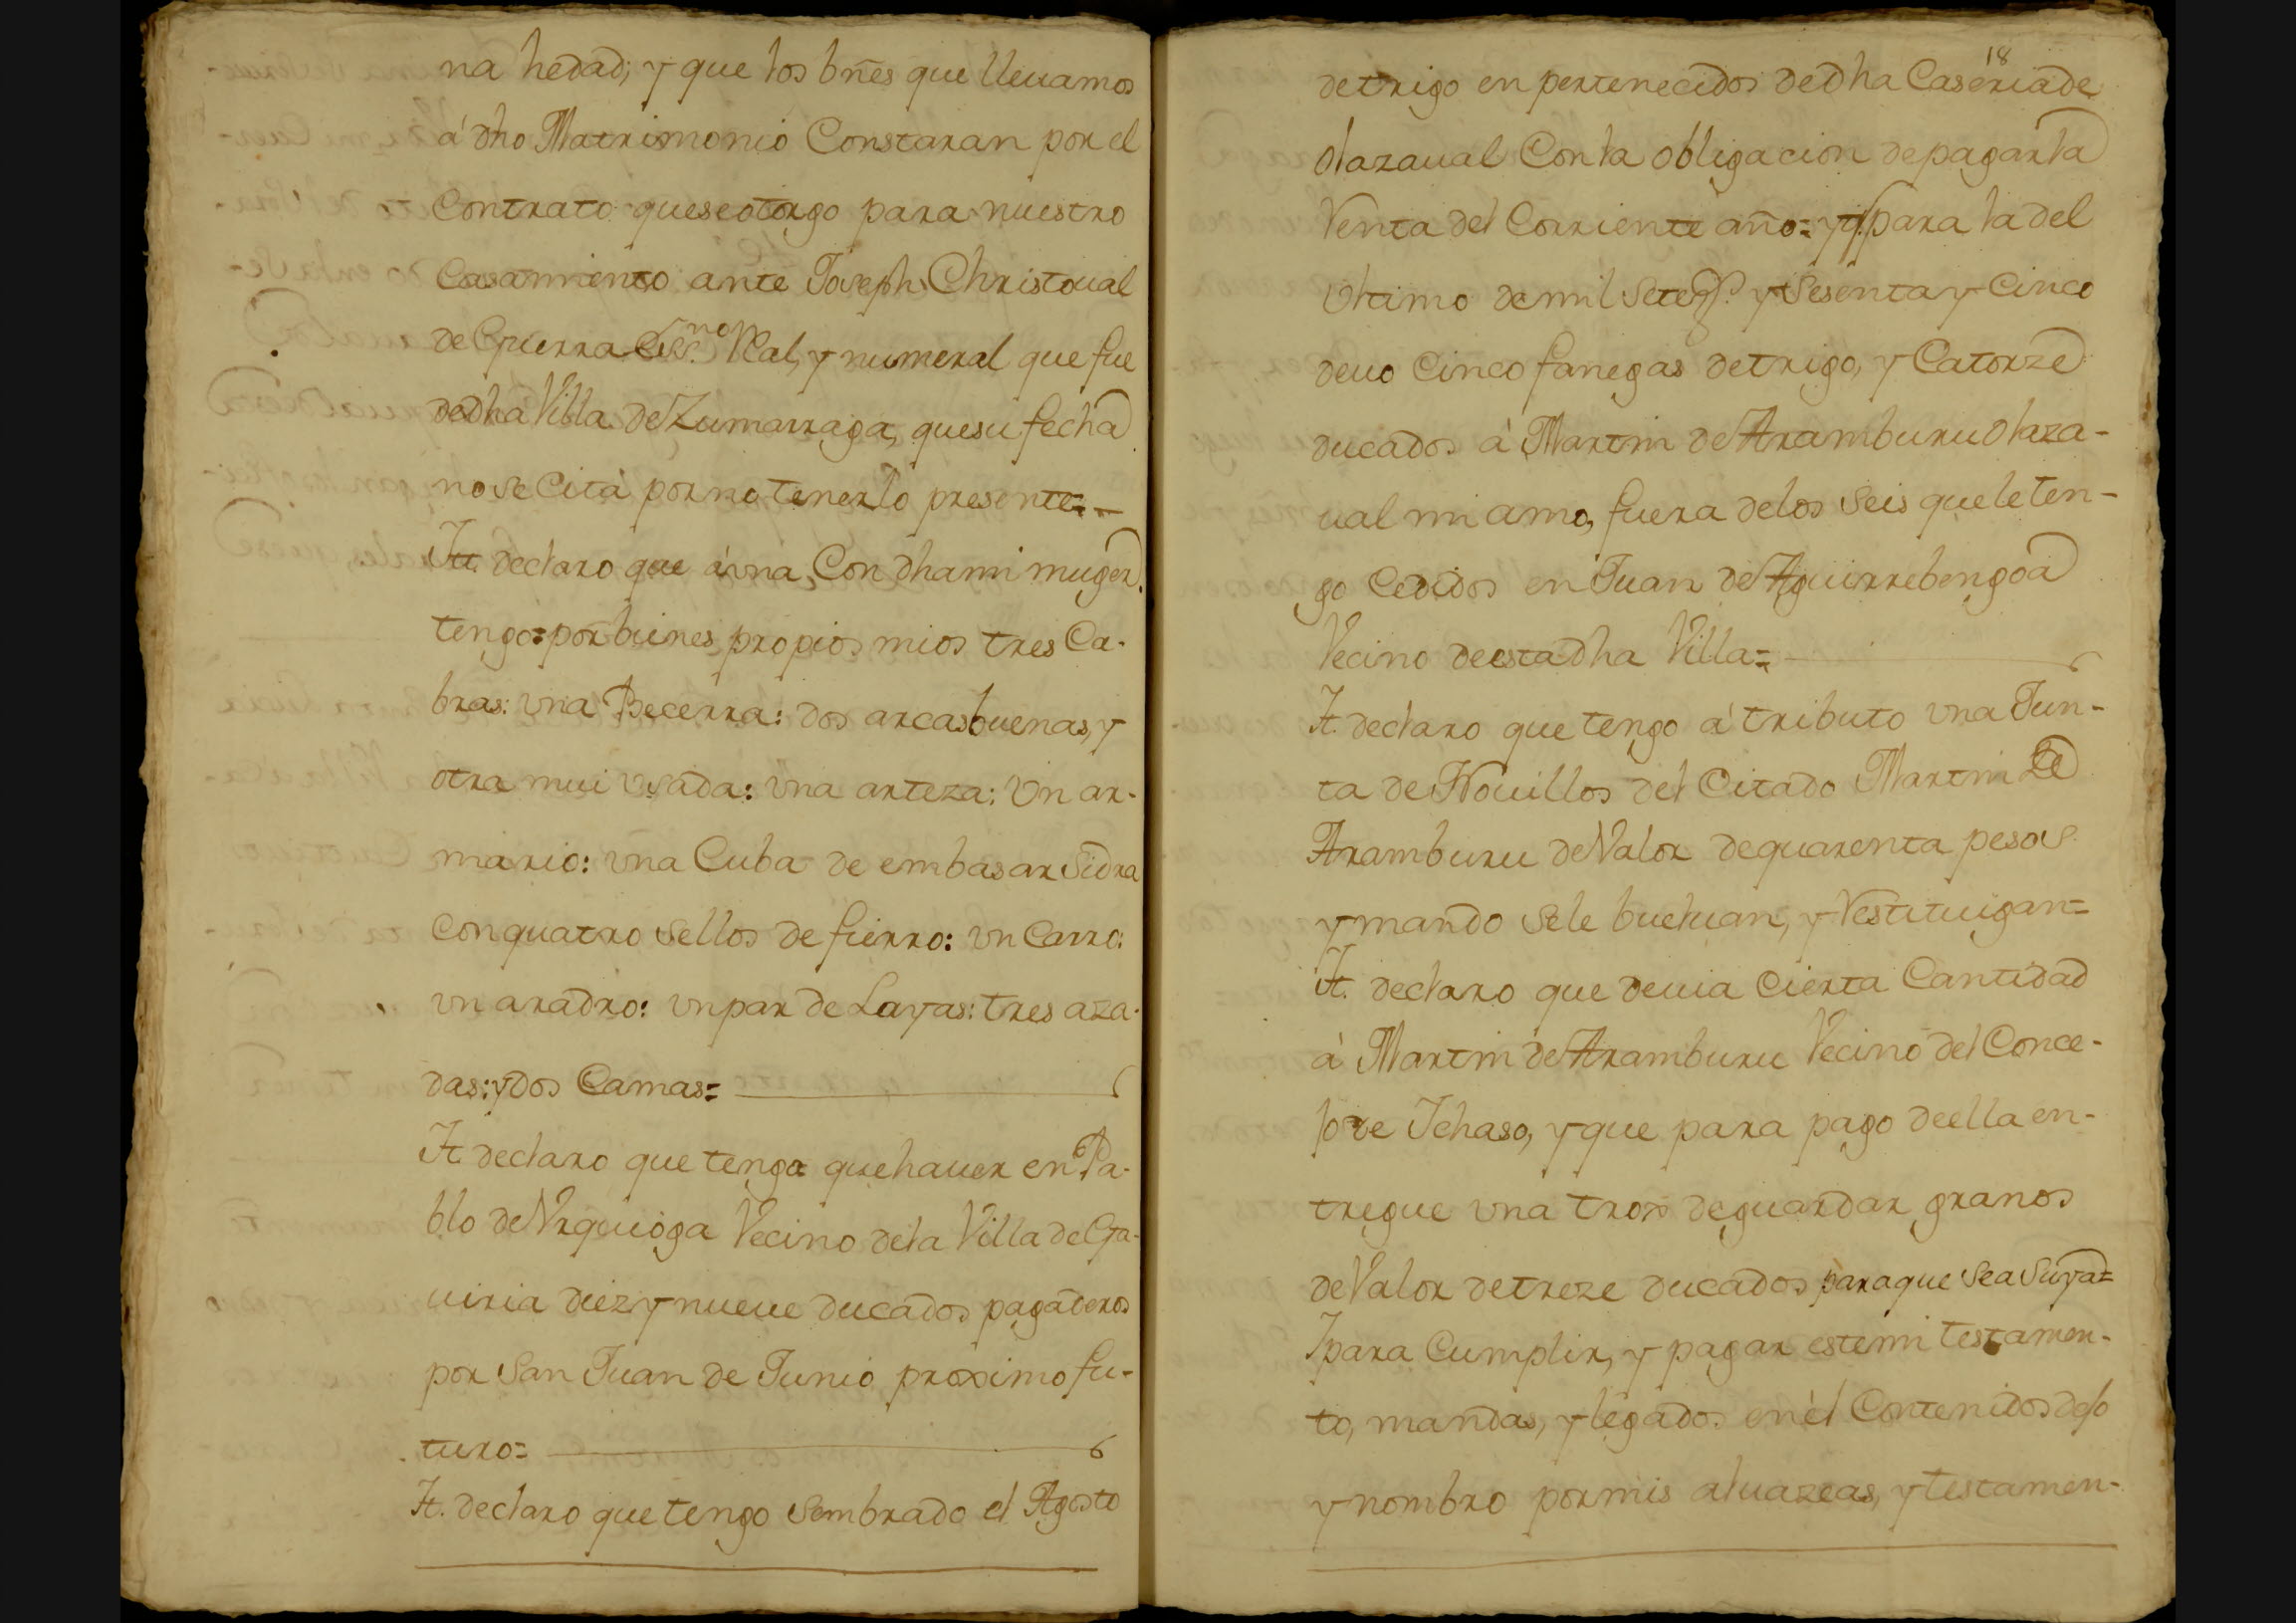 na hedad; y que los bñes que lleuamos
á dho Matrimonio Constaran por el
Contrato que se otorgo para nuestro
Casamiento ante Joseph Christoual
de Guerra Ess.no Real, y numeral que fue
de dha Villa de Zumarraga, que su fecha
no se Cita por no tenerlo presente=
It. declaro que á una Con dha mi muger
tengo=por bienes propios mios tres Ca-
bras: vna Becerra: dos arcas buenas, y
otra mui vsada: vna arteza: Vn ar-
mario: vna Cuba de embasar Sidra
con quatro Sellos de fierro: vn Carro:
vn aradro: vn par de Layas: tres aza-
das: y dos Camas=
It. declaro que tengo que hauer en Pa-
blo de Vrquioga Vecino de la Villa de Ga-
uiria diez y nueue ducados pagaderos
por San Juan de Junio proximo fu-
turo=
It. declaro que tengo Sembrado el Agosto
18
de trigo en pertenecidos de dha Caseria de
Olazaual Con la obligacion de pagar la
Renta del Corriente año= y q. para la del
vltimo de mil Sete.s y Sesenta y Cinco
deuo Cinco fanegas de trigo, y Catorze
ducados á Martin de Aramburu Olaza-
ual mi amo, fuera de los Seis que le ten-
go Cedidos en Juan de Aguirrebengoa
Vecino de esta dha Villa=
It. declaro que tengo á tributo vna Jun-
ta de Nouillos del Citado Martin de
Aramburu de Valor de quarenta pesos
y mando Se le bueluan, y Restituigan=
It. declaro que deuia Cierta Cantidad
á Martin de Aramburu Vecino del Conce-
jo de Ichaso, y que para pago de ella en-
tregue vna trox de guardar granos
de Valor de treze ducados para que Sea Suya=
I para Cumplir, y pagar este mi testamen-
to, mandas, y legados en él Contenidos dejo
y nombro por mis aluazeas, y testamen-